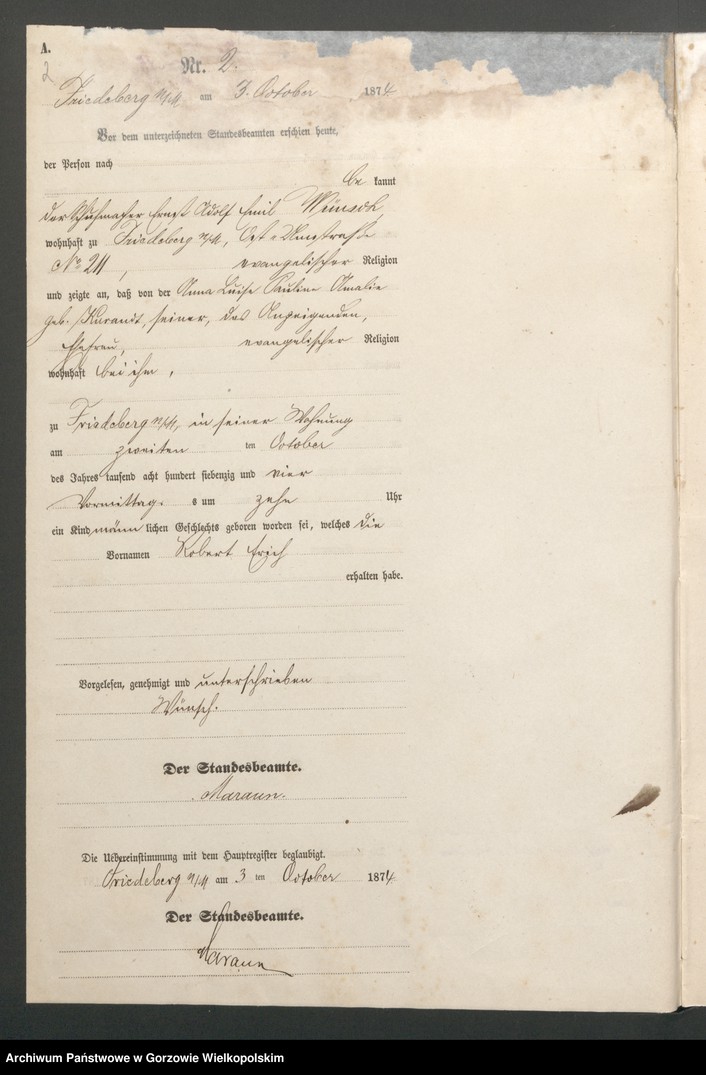 A.
2
Nr. 2.
Friedeberg N/M am 3. October 1874
Vor dem unterzeichneten Standesbeamten erschien heute,
der Person nach
be kannt
der Schuhmacher Ernst Adolf Emil Wünsch,
wohnhaft zu Friedeberg N/M,
No 211, evangelischer Religion
und zeigte an, daß von der Anna Luise Pauline Amalie
geb. Kurandt, seiner, des Anzeigenden,
Ehefrau, evangelischer Religion
wohnhaft bei ihm,
zu Friedeberg N/M, in seiner Wohnung
am zweiten ten October
des Jahres tausend acht hundert siebenzig und vier
Vormittag s um zehn Uhr
ein Kind männ lichen Geschlechts geboren worden sei, welches die
Vornamen Robert Erich
erhalten habe.
Vorgelesen, genehmigt und unterschrieben
Wünsch.
Der Standesbeamte.
Maraun.
Die Uebereinstimmung mit dem Hauptregister beglaubigt.
Friedeberg N/M am 3 ten October 1874
Der Standesbeamte.
Maraun
Archiwum Państwowe w Gorzowie Wielkopolskim